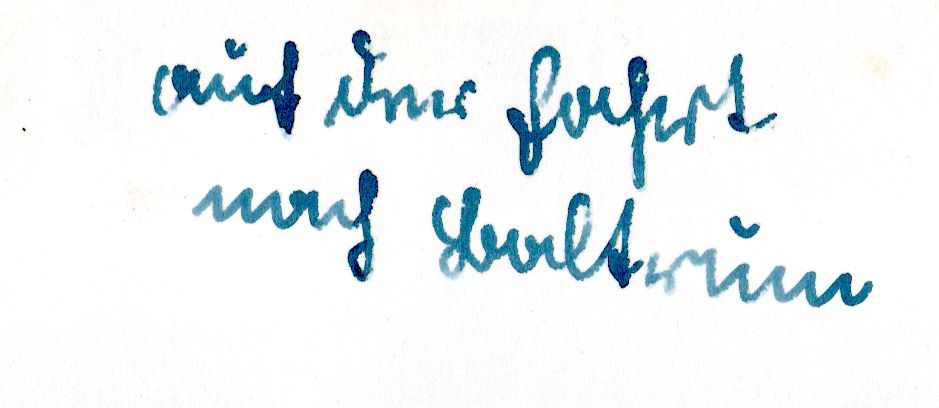 auf der Fahrt
nach Baltrum